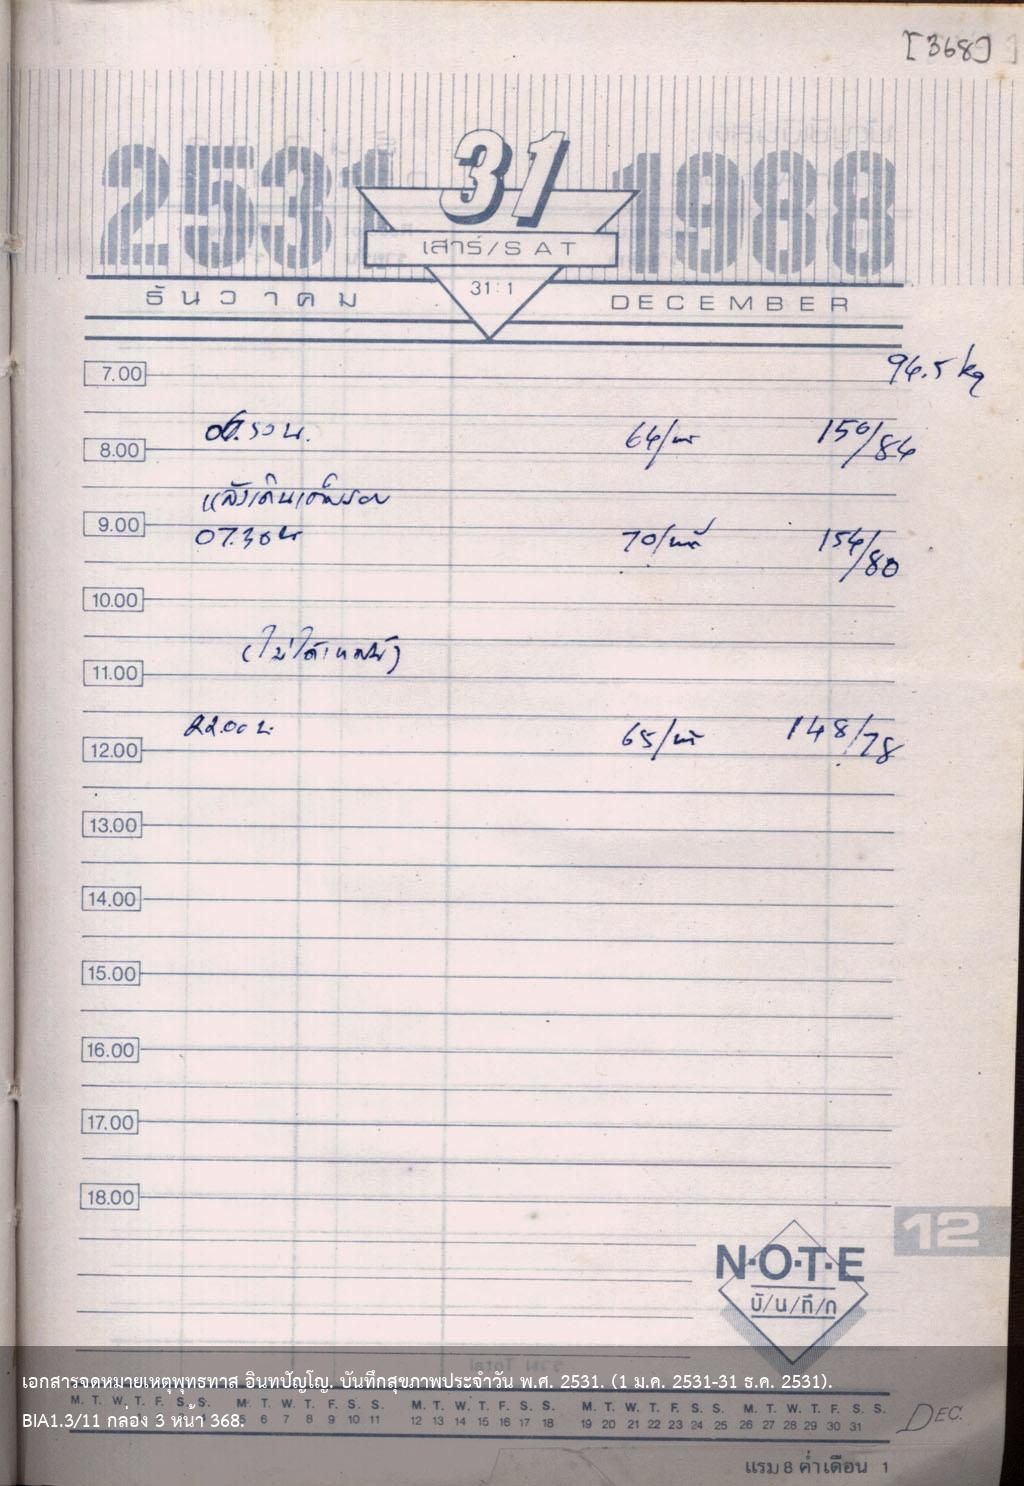 [368]
2531
31
1988
เสาร์/SAT
31:1
ธันวาคม
DECEMBER
7.00
94.5 kg
8.00
64/
150/84
หลังเดินเต็มรอบ
9.00
07.30น
70/
154/80
10.00
(ไม่ได้
11.00
22.00 น.
65/
148/78
12.00
13.00
14.00
15.00
16.00
17.00
18.00
12
N·O·T·E
บั/น/ทึ/ก
เอกสารจดหมายเหตุพุทธทาส อินทปัญโญ. บันทึกสุขภาพประจำวัน พ.ศ. 2531. (1 ม.ค. 2531-31 ธ.ค. 2531).
M. T. W. T. F. S. S. M. T. W. T. F. S. S. M. T. W. T. F. S. S. M. T. W. T. F. S. S. M. T. W. T. F. S. S.
BIA1.3/11 กล่อง 3 หน้า 368.
6 7 8 9 10 11 12 13 14 15 16 17 18 19 20 21 22 23 24 25 26 27 28 29 30 31
DEC.
แรม 8 ค่ำเดือน 1